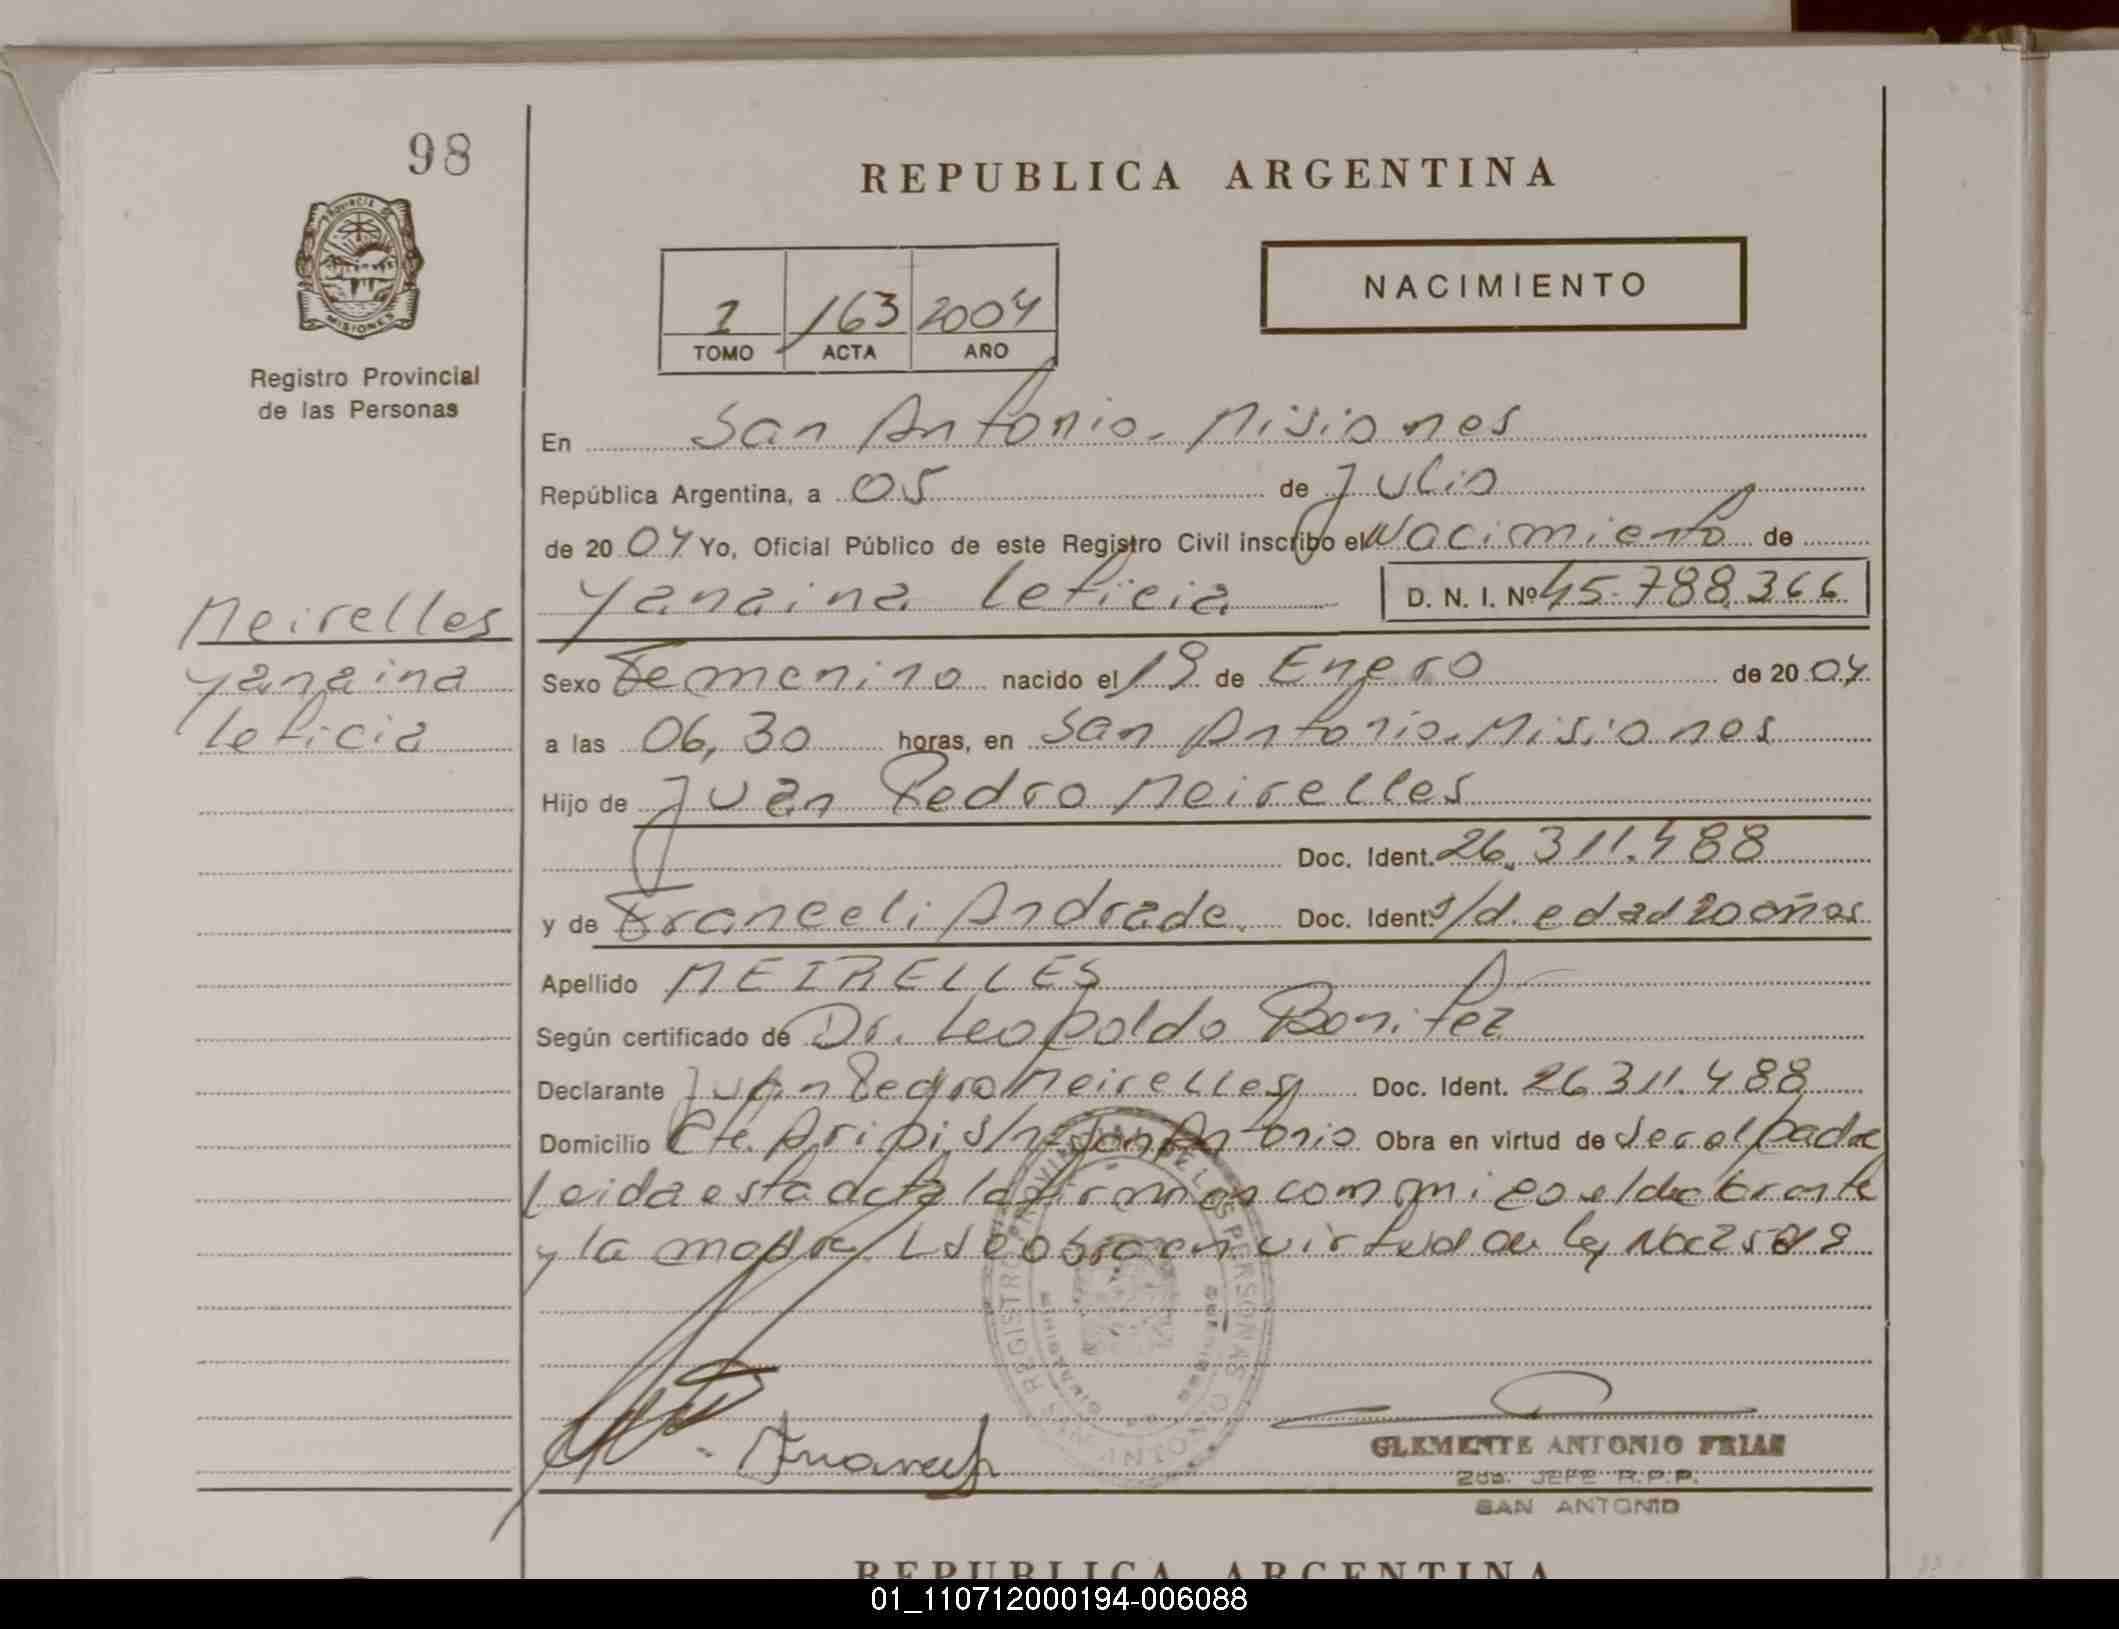 98
REPUBLICA ARGENTINA
PROVINCIA DE
MISIONES
Registro Provincial
de las Personas
NACIMIENTO
1 163 2004
TOMO ACTA AÑO
En San Antonio - Misiones
República Argentina, a 05 de Julio
de 20 04 Yo, Oficial Público de este Registro Civil inscribo el Nacimiento de
Yanaina Leticia D. N. I. Nº 45.788.366
Meirelles
Yanaina
Leticia
Sexo Femenino nacido el 19 de Enero de 20 04
a las 06,30 horas, en San Antonio. Misiones
Hijo de Juan Pedro Meirelles
Doc. Ident. 26.311.488
y de Franceli Andrade. Doc. Ident. s/d. edad 20 años
Apellido MEIRELLES
Según certificado de Dr. Leopoldo Benitez
Declarante Juan Pedro Meirelles Doc. Ident. 26.311.488
Domicilio Pje. Aripi. s/n San Antonio Obra en virtud de ser el padre
Leida esta acta la firman conmigo el declarante
y la madre, Ls obra en virtud de ley No 25819
REGISTRO PROVINCIAL DE LAS PERSONAS
CLEMENTE ANTONIO FRIAS
2do. JEFE R.P.P.
SAN ANTONIO
REPUBLICA ARGENTINA
01_110712000194-006088